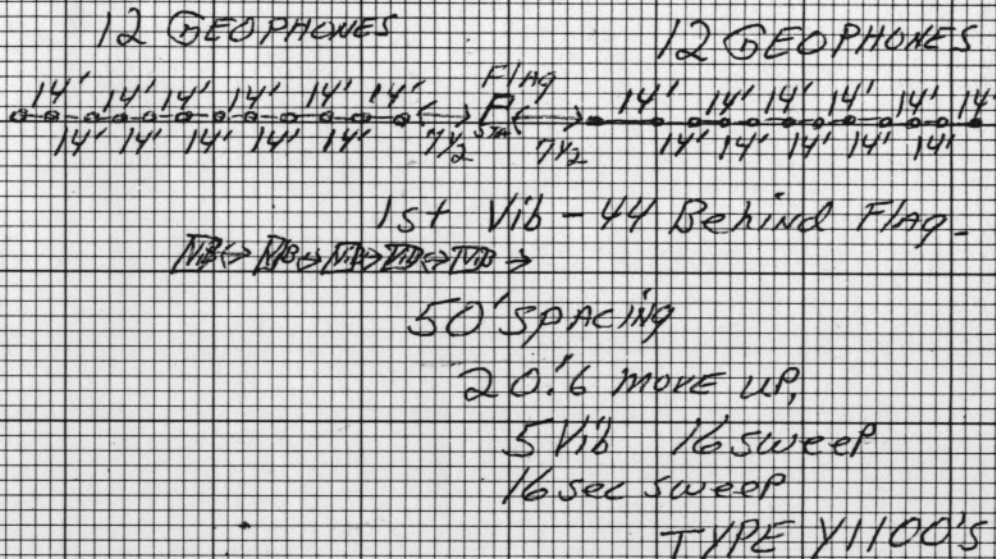 12 GEOPHONES 12 GEOPHONES
Flag
14' 14' 14' 14' 14' 14' 14' 14' 14' 14' 14' 14'
STA
14' 14' 14' 14' 14' 7 1/2 7 1/2 14' 14' 14' 14' 14'
1st Vib - 44 Behind Flag -
VIB VIB VIB VIB VIB
50' SPACING
20.'6 MOVE UP,
5 Vib 16 sweep
16 sec sweep
TYPE Y1100'S